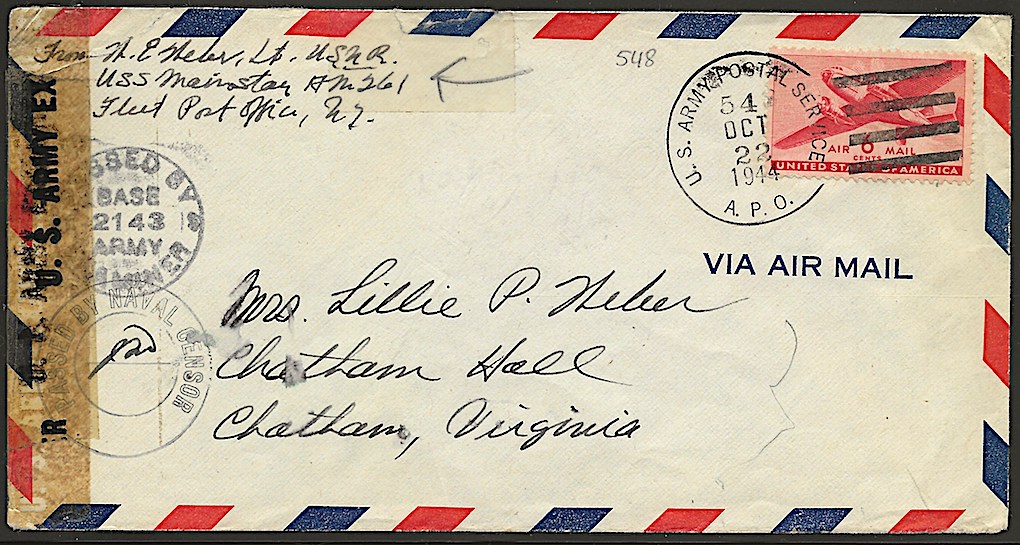 From W. E. Weber, Lt. USNR.
USS Mainstay AM 261
Fleet Post Office, NY.
548
U. S. ARMY POSTAL SERVICE
54
OCT
22
1944
A. P. O.
AIR 6 MAIL
CENTS
UNITED STATES OF AMERICA
U.S. ARMY EX
PASSED BY
BASE
2143
ARMY
EXAMINER
PASSED BY NAVAL CENSOR
VIA AIR MAIL
Mrs. Lillie P. Weber
Chatham Hall
Chatham, Virginia